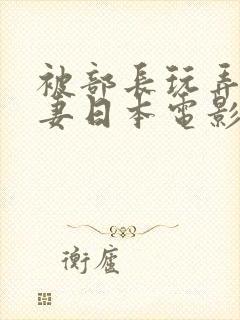 被部長玩弄
妻日本電影
衡廬